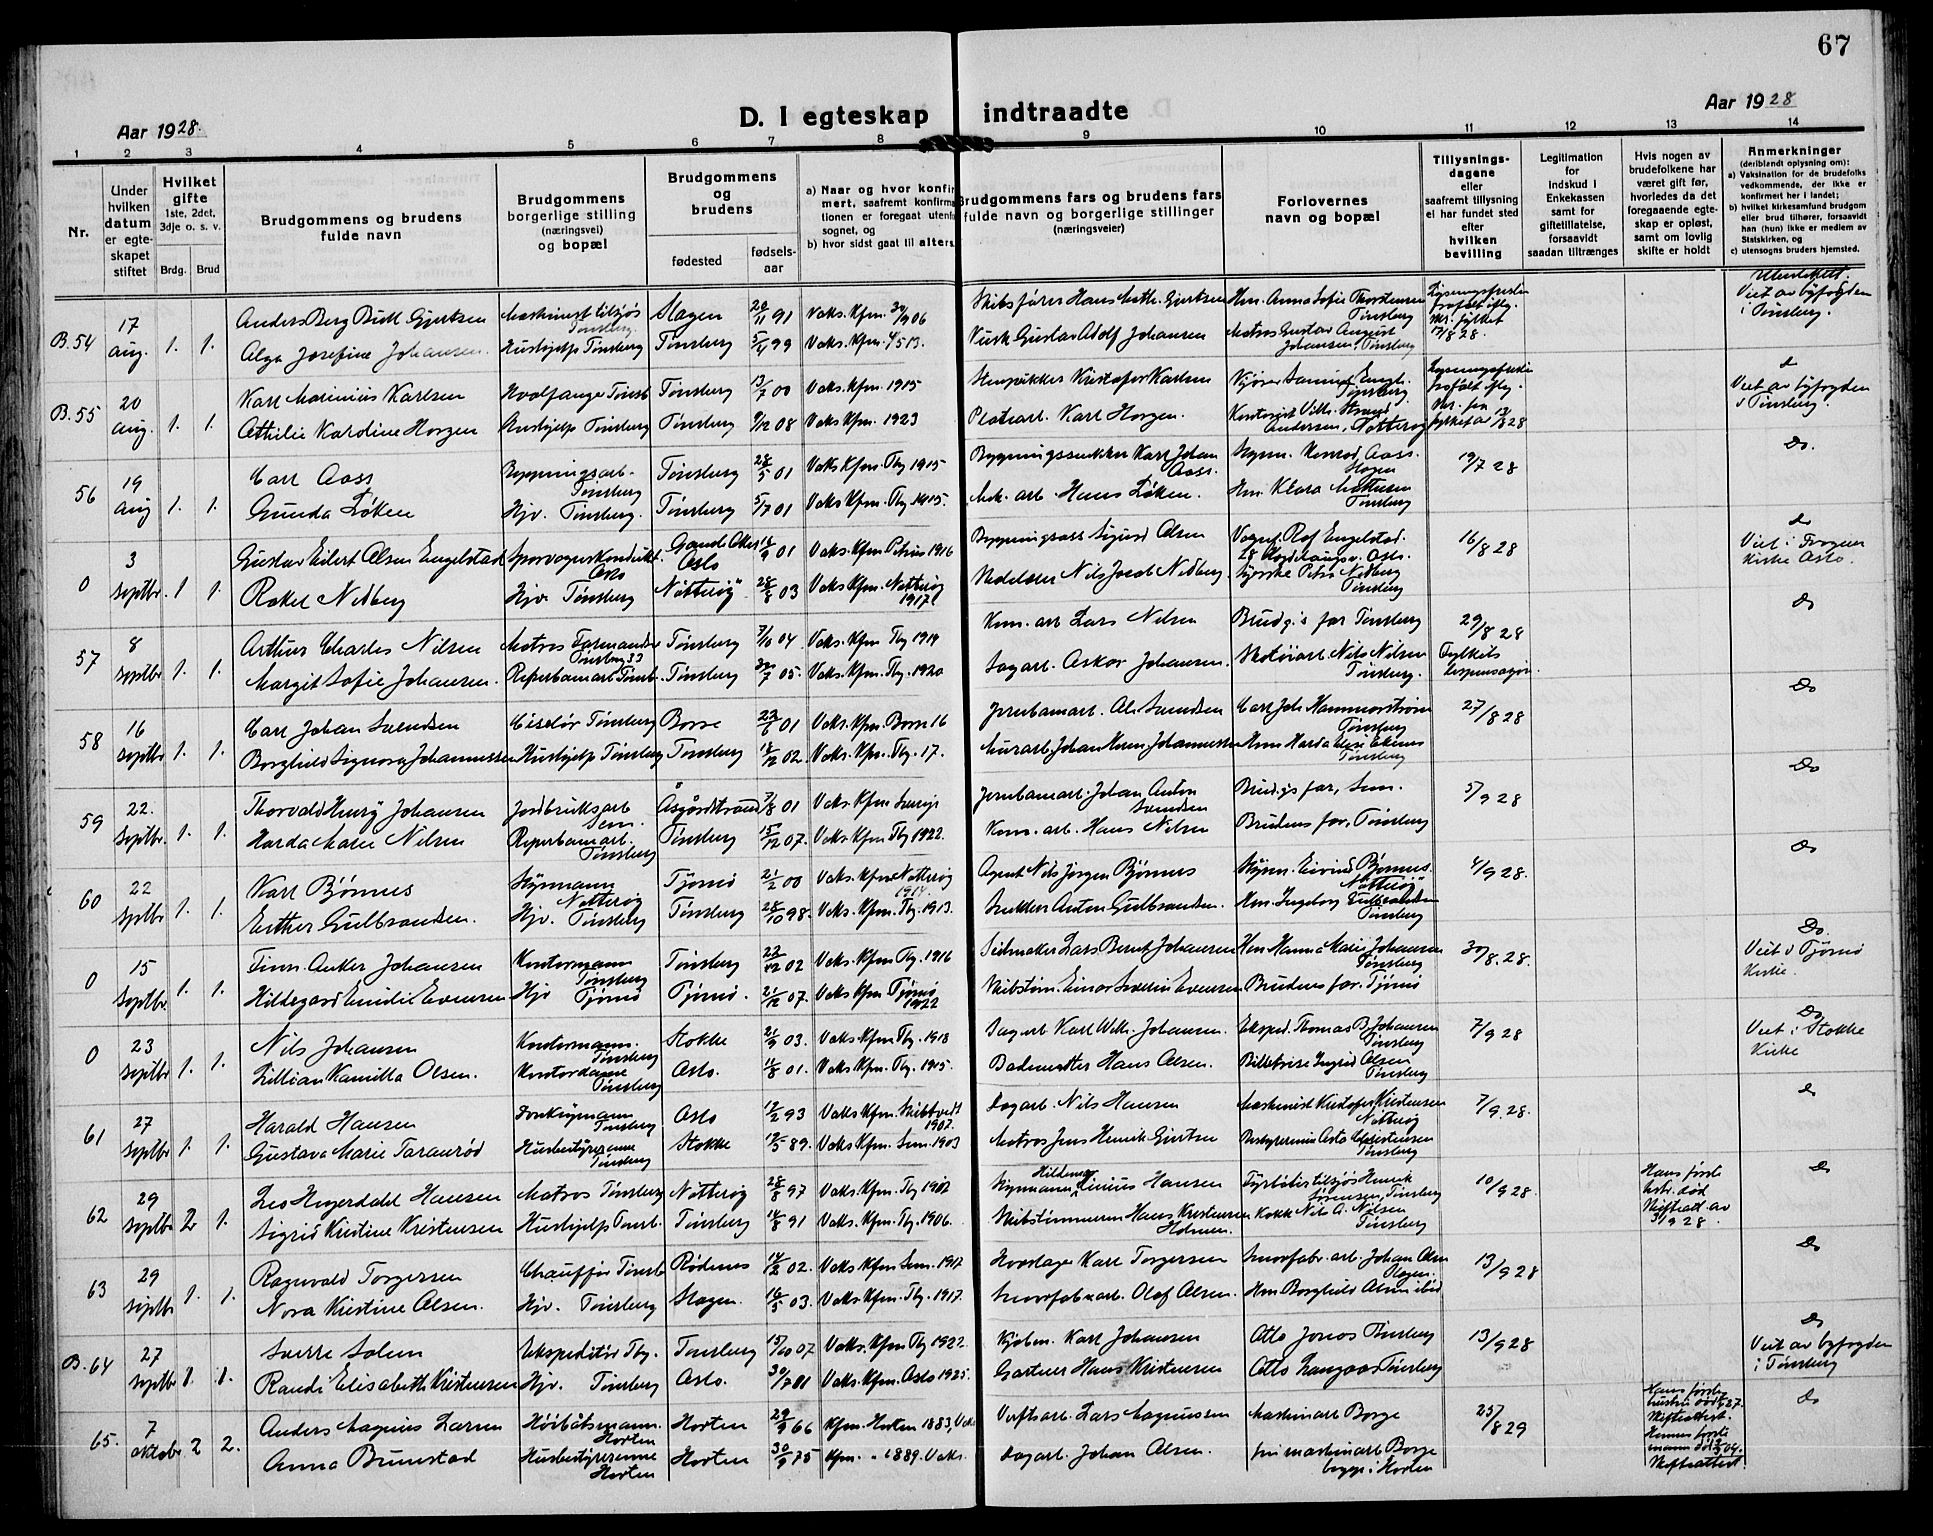 67
Aar 1928.
D. I egteskap indtraadte
Aar 1928
1 2 3 4 5 6 7 8 9 10 11 12 13 14
Nr.
Under hvilken datum er egteskapet stiftet
Hvilket gifte 1ste, 2det, 3dje o. s. v.
Brdg. Brud
Brudgommens og brudens fulde navn
Brudgommens borgerlige stilling (næringsvei) og bopæl
Brudgommens og brudens
fødested fødsels-aar
a) Naar og hvor konfir
mert, saafremt konfirma
tionen er foregaat utenfo
sognet, og
b) hvor sidst gaat til alters
Brudgommens fars og brudens fars
fulde navn og borgerlige stillinger
(næringsveier)
Forlovernes navn og bopæl
Tillysnings-dagene eller saafremt tillysning ei har fundet sted efter hvilken bevilling
Legitimation for indskud i Enkekassen samt for giftetillatelse, forsaavidt saadan tiltrænges
Hvis nogen av brudefolkene har været gift før, hvorledes da det foregaaende egteskap er opløst, samt om lovlig skifte er holdt
Anmerkninger
(deriblandt oplysning om):
a) Vaksination for de brudefolks vedkommende, der ikke er konfirmert her i landet;
b) hvilket kirkesamfund brudgom eller brud tilhører, forsaavidt han (hun) ikke er medlem av Statskirken, og
c) utensogns bruders hjemsted.
B.54 17 aug. 1. 1. Anders Berg Bull Gjertsen Maskinist tilsjøs Tønsberg. Slagen 20/11 91 Vaks. Kfm. 30/9 06 Skibsfører Hans Math. Gjertsen Hm. Anna Sofie Thorstensen Tønsberg
Viet av byfogden i Tønsberg.
Alga Josefine Johansen. Hushjelp Tønsberg Tønsberg 5/4 99 Vaks. Kfm. 4/5 13. Gustav Adolf Johansen Matros Gustav August Johansen, Tønsberg 17/8 28.
B.55 20 aug. 1. 1. Karl Marinius Karlsen Hvalfanger Tønsb. Tønsberg 13/7 00 Vaks. Kfm. 1915 Kristofer Karlsen Tønsberg
Viet av byfogden i Tønsberg.
Athilie Kardine Horgen Hushjelp Tønsberg Tønsberg 9/12 08 Vaks Kfm. 1923 Platearb. Karl Horgen. Kontorist Vilh. Strand Andersen, Nøtterøy
56 19 aug 1. 1. Carl Aass Bygningsarb. Tønsberg Tønsberg 28/5 01 Vaks Kfm. Tbg 1915 Bygningssnekker Karl Johan Aass. Konrad Aass. Slagen 19/7 28 Do.
Gunda Løken Hjv. Tønsberg. Tønsberg 5/7 01 Vaks Kfm. Tbg 1915. Mek. arb. Hans Løken. Hm. Klara Mathisen Tønsberg
0 3 septbr. 1 1. Gustav Eilert Olsen Engelstad Sporvognskonduktør Oslo Oslo 18/9 01 Vaks. Kfm Petrus 1916 Bygningsass. Sigurd Olsen Vognf. Rolf Engelstad. Oslo. 16/8 28
Viet i Frogner Kirke Oslo.
Rakel Nedberg Hjv. Tønsberg Nøtterøy 28/8 03 Vaks Kfm. Nøtterøy 1917 Nils Jacob Nedberg Syerske Petra Nedberg Tønsberg
57 8 septbr 1. 1. Arthur Charles Nilsen Matros Farmandsv. Tønsberg 33 Tønsberg 7/10 04 Vaks. Kfm Tbg 1919 Kom. arb Lars Nilsen Brudg.s far Tønsberg 29/8 28 Do
Margit Sofie Johansen. Reperbanearb. Tønsb. Tønsberg 30/7 05. Vaks. Kfm. Tbg. 1920 Sagarb. Oskar Johansen. Skotøiarb. Nils Nilsen Tønsberg. Fylkets dispensasjon.
58 16 septbr 1. 1. Carl Johan Svendsen Ciselør Tønsberg Borre 22/6 01 Vaks. Kfm. Borre 16 Jernbanearb. Ole Svendsen Carl Joh. Hammerstrøm Tønsberg 27/8 28 Do
Borghild Signora Johannessen Hushjelp Tønsberg Tønsberg 18/12 02. Vaks. Kfm. Tbg. 17. Murarb. Johan Johannessen Tønsberg
59 22. septbr. 1. 1. Thorvald Henry Johansen Jordbruksarb Sem. Åsgårdstrand 7/8 01 Vaks Kfm Sverige Jernbanearb. Johan Anton Svendsen Brudg.s far, Sem. 5/9 28 Do
Harda Marie Nilsen Reperbanearb. Tønsberg Tønsberg 15/12 07. Vaks. Kfm Tbg 1922. Kom. arb. Hans Nilsen Brudens far, Tønsberg
60 22 sptbr 1. 1. Karl Bjønnes Styrmann Nøtterøy Tjømø 21/2 00 Vaks. Kfm Nøtterøy 1914. Agent Nils Jørgen Bjønnes Styrm. Eivind Bjønnes. Nøtterøy 4/9 28. Do
Esther Gulbrandsen. Hjv. Tønsberg Tønsberg 28/10 98. Vaks. Kfm. Tbg. 1913. Snekker Anton Gulbrandsen. Hm. Ingeborg Gulbrandsen Tønsberg
0 15 septbr. 1. 1. Finn Anker Johansen Kontormann Tønsberg Tønsberg 22/12 02 Vaks Kfm Tbg. 1916 Seilmaker Lars Bernt Johansen Hm. Hanna Marie Johansen Tønsberg 30/8. 28. Do.
Viet i Tjømø Kirke.
Hildegard Emilie Evensen Hjv Tjømø Tjømø. 21/12 07. Vaks Kfm Tjømø 1922 Skibstøm. Einar Severin Evensen Brudens far. Tjømø
0 23 septbr 1. 1. Nils Johansen Kontormann. Tønsberg Stokke 21/9 03. Vaks Kfm. Tbg. 1918 Sagarb Karl Wilh. Johansen. Eksped. Thomas B. Johansen Tønsberg 7/9 28 Do
Viet i Stokke Kirke
Lillian Kamilla Olsen. Kontordame Tønsberg Oslo. 11/8 01. Vaks Kfm. Tbg. 1915. Bademester Hans Olsen. Ingrid Olsen Tønsberg
61 27 septbr 1. 1. Harald Hansen Tønsberg Oslo 12/2 93 Vaks Kfm. Skibtvedt 1907. Dagarb. Nils Hansen Maskinist Kristofer Kristensen Nøtterøy 7/9. 28.
Gustava Marie Taranrød Husbestyrerinne Tønsberg Stokke 12/5 89. Vaks Kfm. Sem. 1903 Matros Jens Henrik Gjertsen Bestyrerinne Asta Christensen Tønsberg
62 29 septbr 2 1. Leo Heyerdahl Hansen Matros Tønsberg Nøtterøy 28/8 97 Vaks. Kfm. Tbg 1912 Styrmann Hildemar Linius Hansen Fyrbøter tilsjøs Henrik Sørensen, Tønsberg 10/9 28. Hans første hstr. død Skifteatt av 3/9 28. Do
Sigrid Kristine Kristensen Hushjelp Tønsb. Tønsberg 14/8 91 Vaks. Kfm. Tbg. 1906. Skibstømmerm Hans Kristensen Holmen. Kokk Nils A. Nilsen Tønsberg
63 29 septbr 1. 1. Ragnvald Torgersen Chauffør Tønsb. Rødenes 14/2 02. Vaks Kfm Sem. 1917 Hovslager Karl Torgersen Smørfabr. arb. Johan Olsen Slagen. 13/9 28 Do
Nora Kristine Olsen. Hjv. Tønsberg Slagen. 16/5 03. Vaks. Kfm. Tbg. 1917. Smørfabr.arb. Olaf Olsen. Hm Borghild Olsen ibid
B.64 27 septbr 1. 1. Sverre Solem Ekspeditør Tbg. Tønsberg 15/10 07 Vaks. Kfm Tbg 1922. Kjøbm. Karl Johansen Otto Jonas Tønsberg 13/9 28 Do
Viet av byfogden i Tønsberg
Randi Elisabeth Kristensen Hjv. Tønsberg Oslo. 30/7 01 Vaks. Kfm. Oslo 1925. Gartner Hans Kristensen Otto Langaas Tønsberg
65. 7 oktobr 2 2. Anders Magnus Larsen Høibåtsmann. Horten Horten 29/9 66 Kfm. Horten 1883, Vaks Verftsarb. Lars Magnussen Maskinarb Borge 25/8 29 Hans første hustru død 27. Skifteattest. Do
Anna Brunstad Husbestyrerinne Horten Horten 30/9 75 Kfm. " 1889. Vaks. Dagarb. Johan Olsen. fru maskinarb Borge begge i Horten Hennes første mann død 04. Skifteattest.